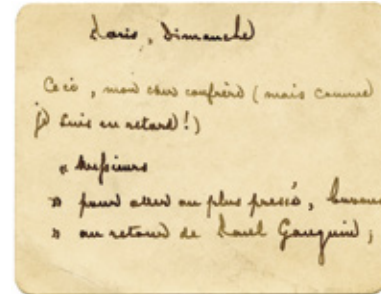 Paris, Dimanche
Ceci, mon cher confrère (mais comme
je suis en retard!)
« Messieurs
» pour aller au plus pressé, buvons
» au retour de Paul Gauguin ;